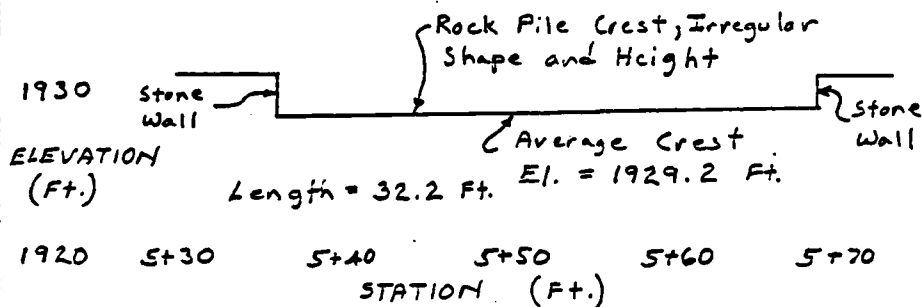 Rock Pile Crest, Irregular
Shape and Height
1930
Stone
Wall
Stone
Wall
Average Crest
El. = 1929.2 Ft.
ELEVATION
(Ft.)
Length = 32.2 Ft.
1920 5+30 5+40 5+50 5+60 5+70
STATION (Ft.)